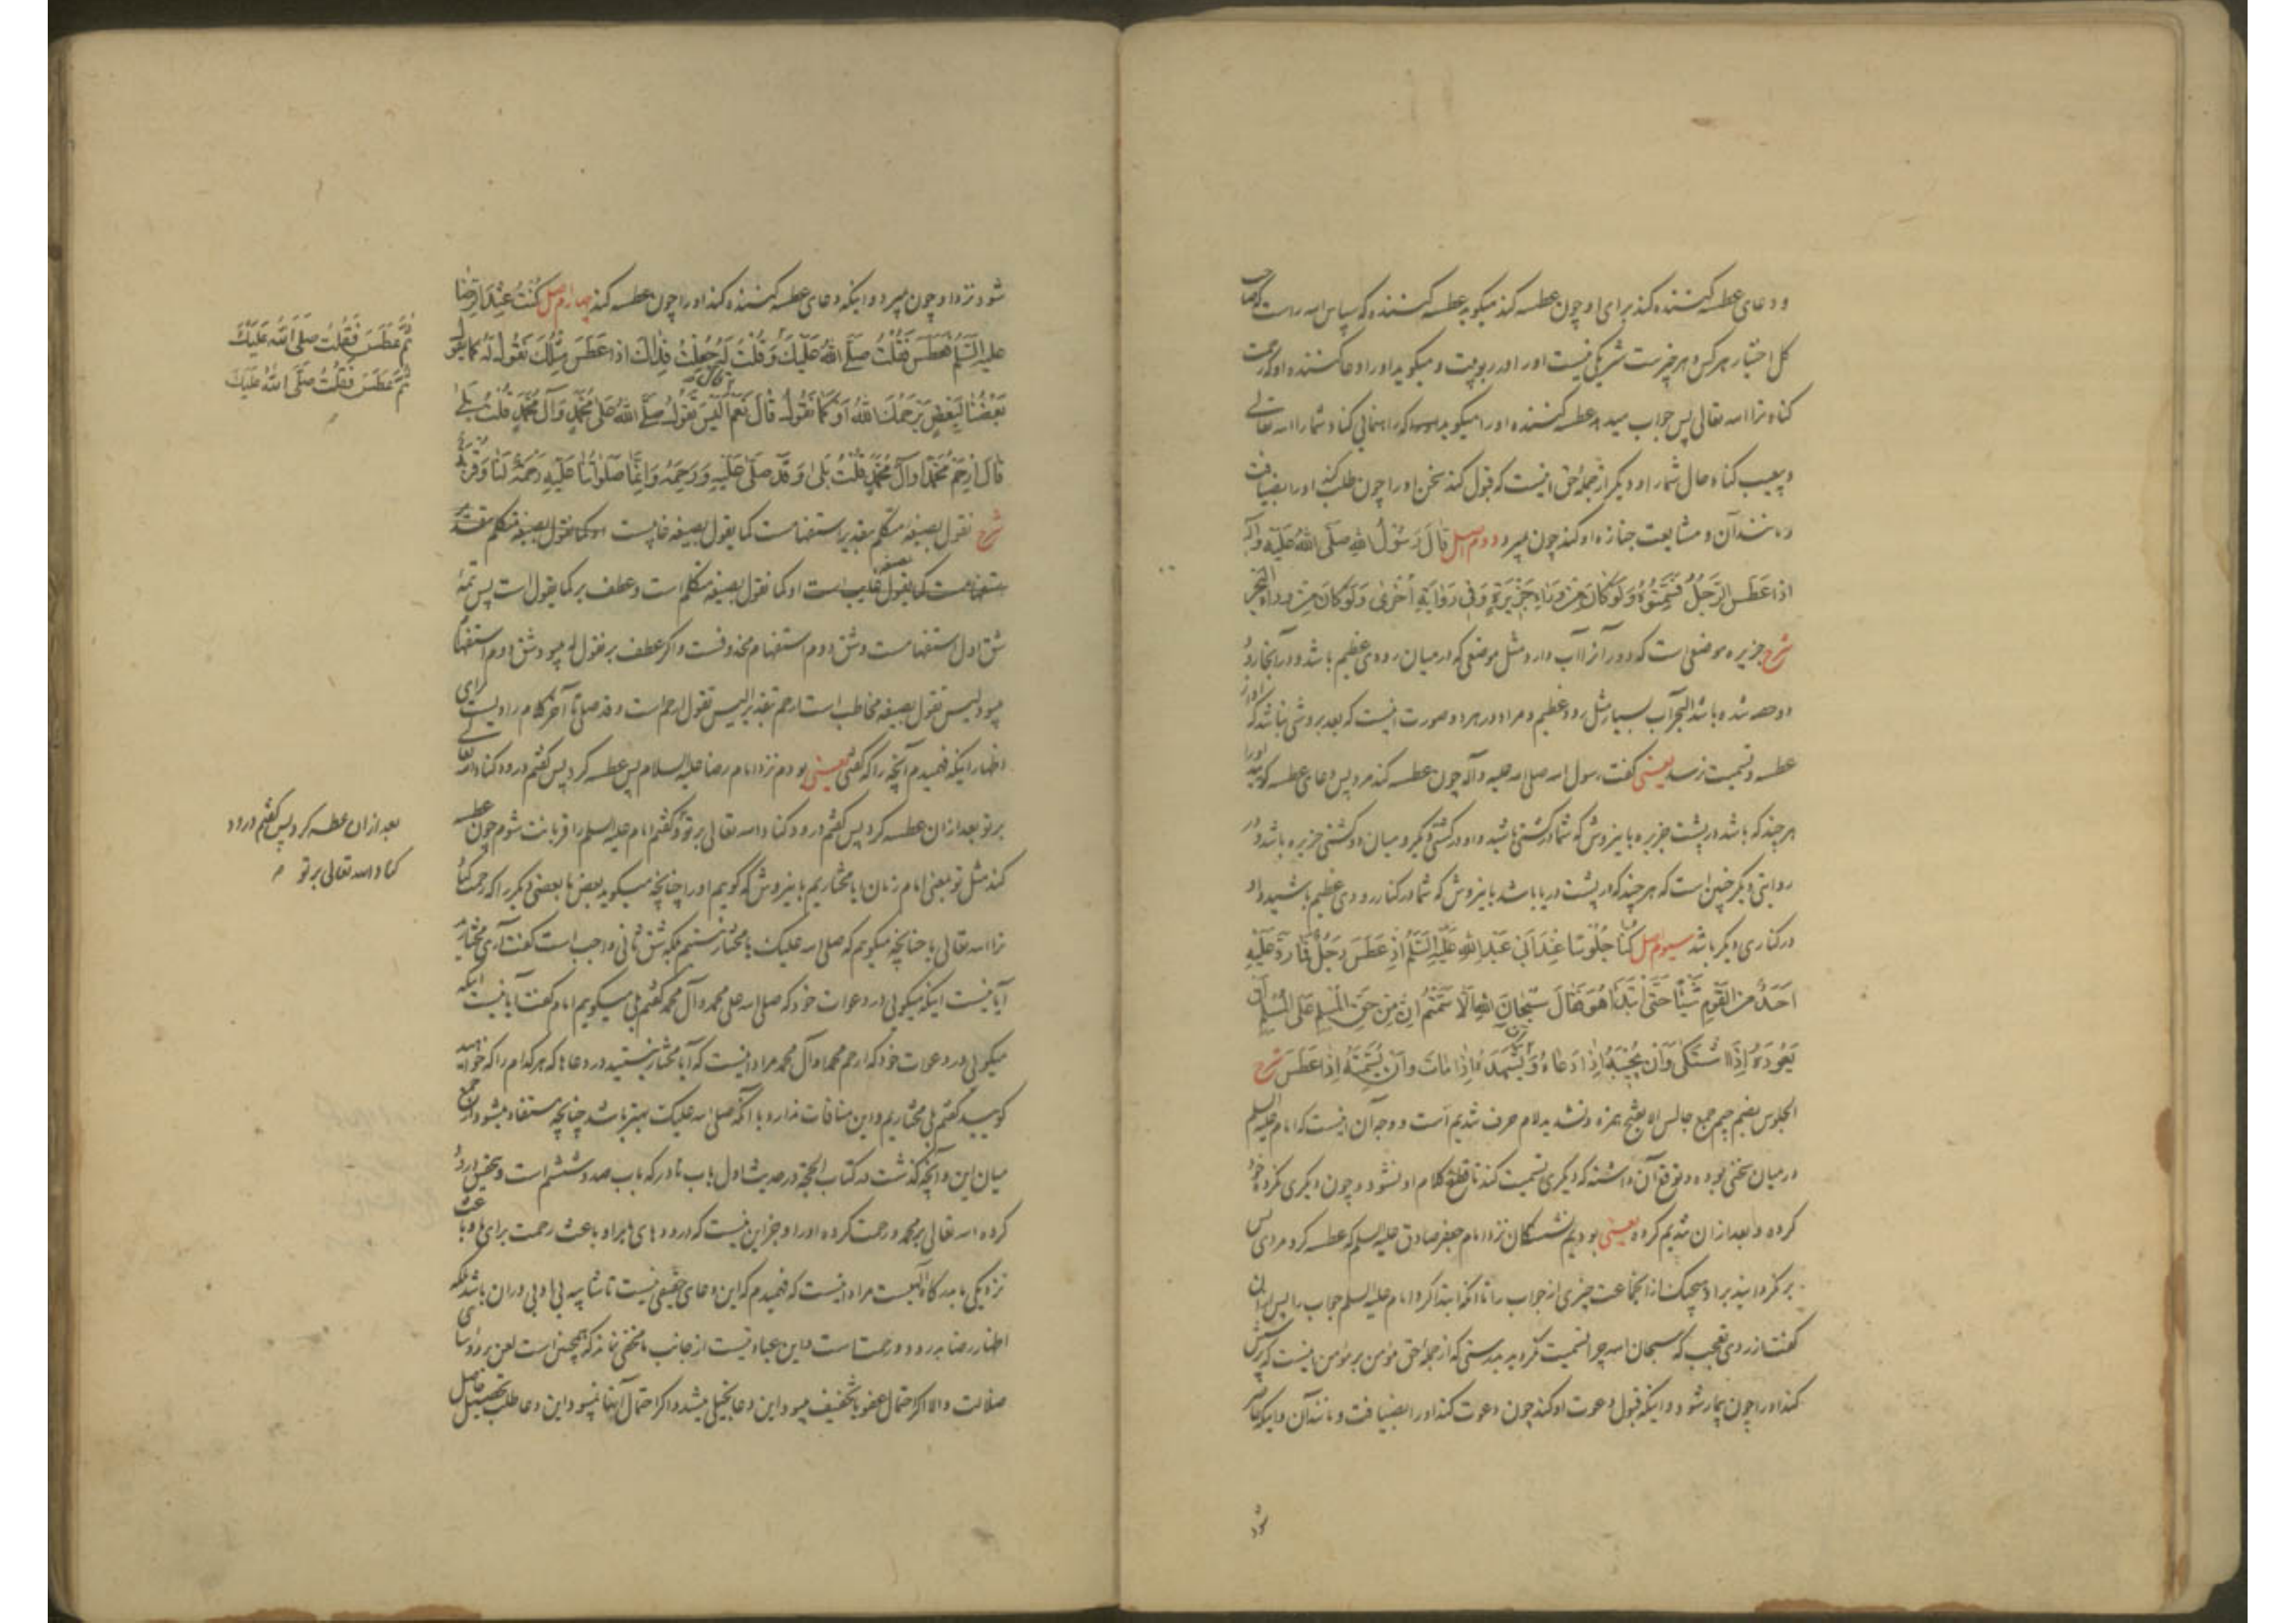 و دعای عطسه کننده کند برای او چون عطسه کند میگوید عطسه کننده که سپاس الله راست که صاحب
کل اختیار هر کس و هر چیز است شریکی نیست او را در ربوبیت و میگوید او را دعا کننده او که رحمت
کناد ترا الله تعالی پس جواب میدهد عطسه کننده او را میگوید که راهنمائی کناد شما را الله تعالی
و بیعیب کناد حال شما را و دیگر از جمله حق اینست که قبول کند سخن او را چون طلب کند او را بضیافت
و مانند آن و مشایعت جنازه او کند چون میرد دوم اصل قَالَ رَسُولُ اللهِ صَلَّی اللهُ عَلَیْهِ وَآلِهِ
اِذَا عَطَسَ الرَّجُلُ فَسَمِّتُوهُ وَلَوْ کَانَ مِنْ وَرَاءِ جَزِیرَةٍ وَفِی رِوَایَةٍ اُخْرَی وَلَوْ کَانَ مِنْ وَرَاءِ الْبَحْرِ
شرح جزیره موضعی است که دور آنرا آب دارد مثل موضعی که در میان رودی عظیم باشد و در آنجا رود
دو حصه شده باشد البحر آب بسیار مثل رود عظیم و مراد در هر دو صورت اینست که بعد بروشی نباشد که آواز
عطسه و تسمیت نرسد یعنی گفت رسول الله صلی الله علیه و آله چون عطسه کند مرد پس دعای عطسه گوئید او را
هر چند که باشد در پشت جزیره باینروش که شما در کشتی باشید و او در کشتی دیگر و میان دو کشتی جزیره باشد و در
روایتی دیگر چنین است که هر چند که در پشت دریا باشد باینروش که شما در کنار رودی عظیم باشید و او
در کناری دیگر باشد سیوم اصل کُنَّا جُلُوسًا عِنْدَ اَبِی عَبْدِ اللهِ عَلَیْهِ السَّلَمُ اِذْ عَطَسَ رَجُلٌ فَمَا رَدَّ عَلَیْهِ
اَحَدٌ مِنَ الْقَوْمِ شَیْئًا حَتَّی ابْتَدَاَ هُوَ فَقَالَ سُبْحَانَ اللهِ اَلَّا سَمَّتُّمْ اِنَّ مِنْ حَقِّ الْمُسْلِمِ عَلَی الْمُسْلِمِ اَنْ
یَعُودَهُ اِذَا اشْتَکَی وَاَنْ یُجِیبَهُ اِذَا دَعَاهُ وَاَنْ یَشْهَدَهُ اِذَا مَاتَ وَاَنْ یُسَمِّتَهُ اِذَا عَطَسَ شرح
الجلوس بضم جیم جمع جالس الا بفتح همزه و تشدید لام حرف تندیم است و وجه آن اینست که امام علیه السلم
در میان سخنی بوده و توقع آن داشته که دیگری تسمیت کند تا قطع کلام او نشود و چون دیگری نکرد خود
کرده و بعد از آن تندیم کرده یعنی بودیم نشستگان نزد امام جعفر صادق علیه السلم که عطسه کرد مردی پس
بر نگردانید بر او هیچیک از انجماعت چیزی از جواب را تا آنکه ابتدا کرد امام علیه السلم جواب را پس بعد از آن
گفت از روی تعجب که سبحان الله چرا تسمیت نکردید بدرستی که از جمله حق مؤمن بر مؤمن اینست که پرسش
کند او را چون بیمار شود و اینکه قبول دعوت او کند چون دعوت کند او را بضیافت و مانند آن و اینکه حاضر
شود
شود نزد او چون میرد و اینکه دعای عطسه کننده کند او را چون عطسه کند چهارم اصل کُنْتُ عِنْدَ الرِّضَا
عَلَیْهِ السَّلَمُ فَعَطَسَ فَقُلْتُ صَلَّی اللهُ عَلَیْکَ وَقُلْتُ لَهُ جُعِلْتُ فِدَاکَ اِذَا عَطَسَ مِثْلُکَ نَقُولُ لَهُ کَمَا یَقُولُ
بَعْضُنَا لِبَعْضٍ یَرْحَمُکَ اللهُ اَوْ کَمَا نَقُولُ قَالَ نَعَمْ اَلَیْسَ تَقُولُ صَلَّی اللهُ عَلَی مُحَمَّدٍ وَآلِ مُحَمَّدٍ قُلْتُ بَلَی
قَالَ ارْحَمْ مُحَمَّدًا وَآلَ مُحَمَّدٍ قُلْتُ بَلَی وَقَدْ صَلَّی عَلَیْهِ وَرَحِمَهُ وَاِنَّمَا صَلَوَاتُنَا عَلَیْهِ رَحْمَةٌ لَنَا وَقُرْبَةٌ
شرح نقول بصیغه متکلم بتقدیر استفهامست کما یقول بصیغه غایبست او کما نقول بصیغه متکلم بتقدیر
استفهامست کما یقول بصیغه غایب است او کما نقول بصیغه متکلم است و عطف بر کما یقول است پس تتمهٔ
شق اول استفهامست و شق دوم استفهام محذوفست و اگر عطف بر نقول له میبود شق دوم استفهام
میبود الیس تقول بصیغه مخاطب است ارحم بتقدیر الیس تقول ارحم است و قد صلی تا آخر کلام راویست برای
اظهار اینکه فهمیدم آنچه را که گفتی یعنی بودم نزد امام رضا علیه السلام پس عطسه کرد پس گفتم درود کناد الله تعالی
بر تو بعد از ان عطسه کرد پس گفتم درود کناد الله تعالی بر تو و گفتم امام علیه السلم را قربانت شوم چون عطسه
کند مثل تو یعنی امام زمان ایا مختاریم باینروش که گوییم او را چنانچه میگوید بعض ما بعضی دیگر را که رحمت کناد
ترا الله تعالی یا چنانچه میگویم که صلی الله علیک یا مختار نیستم بلکه شق ثانی واجب است گفت آری مختارید
آیا نیست اینکه میگوئی در دعوات خود که صلی الله علی محمد و آل محمد گفتم بلی میگویم امام گفت آیا نیست اینکه
میگوئی در دعوات خود که ارحم محمدا و آل محمد مراد اینست که آیا مختار نیستید در دعاها که هر کدام را که خواهید
گویید گفتم بلی مختاریم و این منافات ندارد با آنکه صلی الله علیک بهتر باشد چنانچه مستفاد میشود از جمع
میان این و آنچه گذشت در کتاب الحجة در حدیث اول باب نادر که باب صد و ششم است و بتحقیق درود
کرده الله تعالی بر محمد و رحمت کرده او را و جز این نیست که درودهای ما بر او باعث رحمت برای ما و باعث
نزدیکی ما بدرگاه الهیست مراد اینست که فهمیدم که این دعای حقیقی نیست تا شایبه بی ادبی در ان باشد بلکه
اظهار رضا بدرود و رحمت است و این عبادتیست از جانب ما مخفی نماند که همچنین است لعن بر رؤسای
ضلالت و الا اگر احتمال عفو یا تخفیف میبود این دعا بخیلی میشد و اگر احتمال آنها نمیبود این دعا طلب تحصیل حاصل
ثُمَّ عَطَسَ فَقُلْتُ صَلَّی اللهُ عَلَیْکَ
ثُمَّ عَطَسَ فَقُلْتُ صَلَّی اللهُ عَلَیْکَ
بعد از ان عطسه کرد پس گفتم درود
کناد الله تعالی بر تو